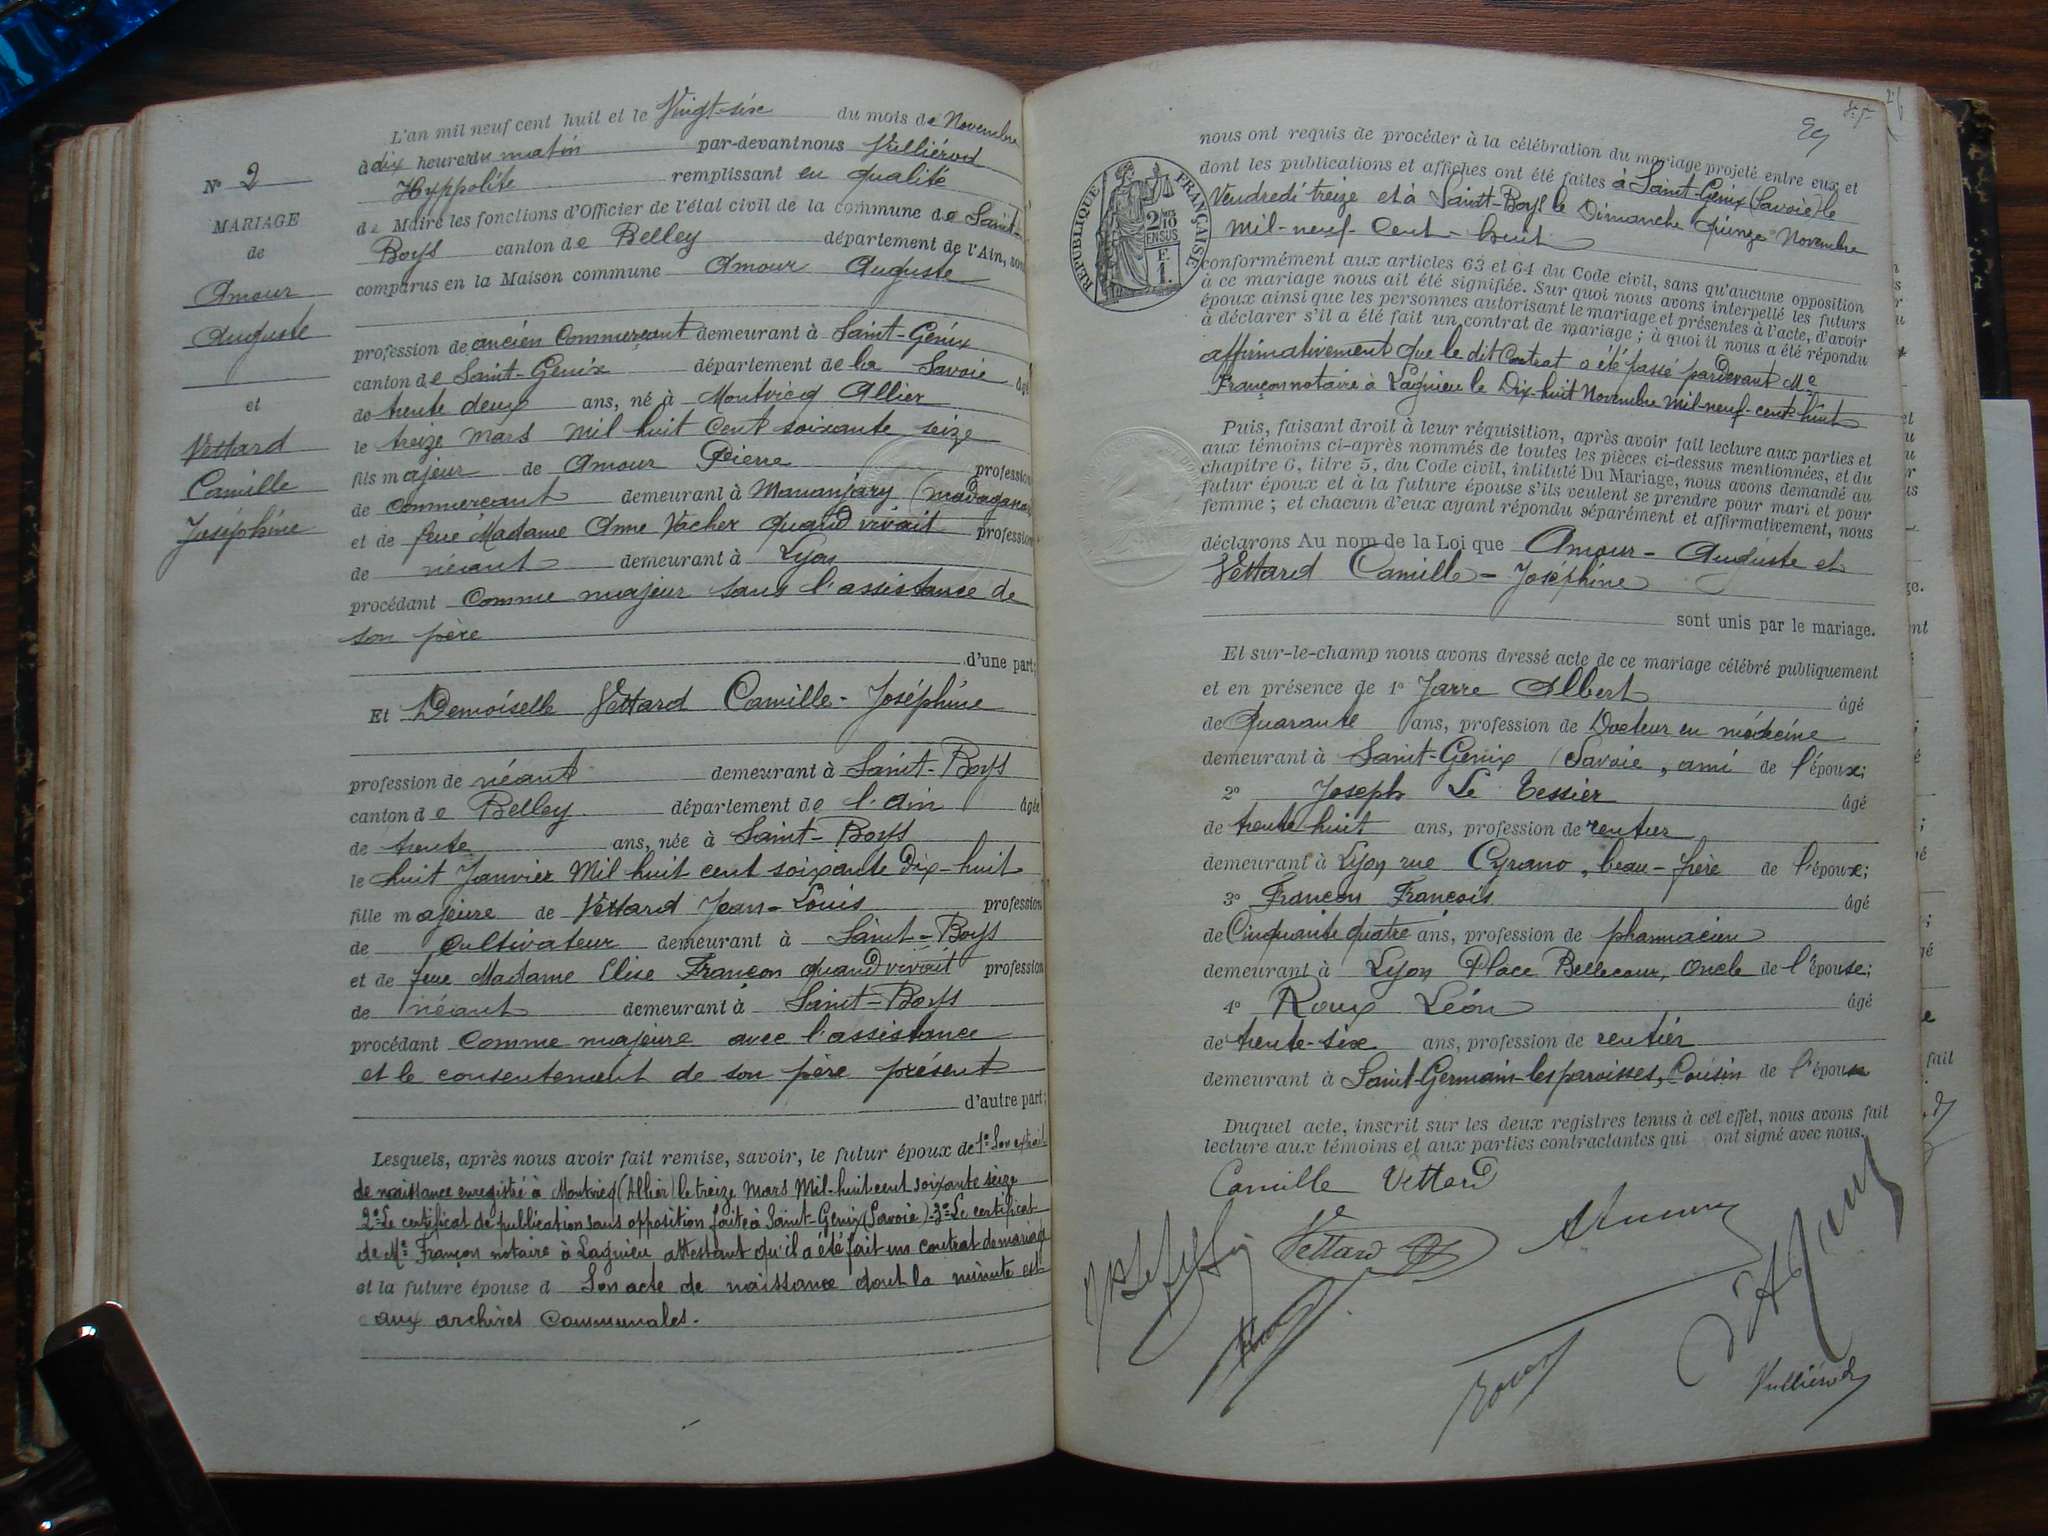 N° 2
MARIAGE
de
Amour
Auguste
et
Vettard
Camille
Joséphine
L'an mil neuf cent huit et le Vingt-six du mois de Novembre
à dix heures du matin par-devant nous Vulliérod
Hyppolite remplissant en qualité
de Maire les fonctions d'Officier de l'état civil de la commune de Saint-
Boys canton de Belley département de l'Ain, sont
comparus en la Maison commune Amour Auguste
profession de ancien Commerçant demeurant à Saint-Génix
canton de Saint-Génix département de la Savoie âgé
de trente deux ans, né à Montvicq Allier
le treize Mars mil huit Cent soixante seize
fils majeur de Amour Pierre profession
de Commercant demeurant à Mananjary (Madagascar
et de feue Madame Anne Vacher quand vivait profession
de néant demeurant à Lyon
procédant Comme majeur sans l'assistance de
son père
d'une part;
Et Demoiselle Vettard Camille-Joséphine
profession de néant demeurant à Saint-Boys
canton de Belley département de l'Ain âgée
de trente ans, née à Saint-Boys
le huit Janvier Mil huit cent soixante Dix-huit
fille majeure de Vettard Jean-Louis profession
de Cultivateur demeurant à Saint-Boys
et de feue Madame Elise Françon quand vivait profession
de néant demeurant à Saint-Boys
procédant Comme majeure avec l'assistance
et le consentement de son père présent
d'autre part;
Lesquels, après nous avoir fait remise, savoir, le futur époux de 1° Son extrait
de naissance enregistré à Montvicq (Allier) le treize Mars Mil-huit cent soixante seize
2° Le certificat de publication sans opposition faite à Saint-Genix (Savoie) - 3° Le certificat
de Me Françon notaire à Lagnieu attestant qu'il a été fait un contrat de mariage
et la future épouse d Son acte de naissance dont la minute est
aux archives Communales.
29
nous ont requis de procéder à la célébration du mariage projeté entre eux et
dont les publications et affiches ont été faites à Saint-Génix (Savoie) le
Vendredi treize et à Saint-Boys le Dimanche Quinze Novembre
Mil-neuf-Cent-huit
RÉPUBLIQUE FRANÇAISE
2/10 EN SUS
F.
1.
conformément aux articles 63 et 64 du Code civil, sans qu'aucune opposition
à ce mariage nous ait été signifiée. Sur quoi nous avons interpellé les futurs
époux ainsi que les personnes autorisant le mariage et présentes à l'acte, d'avoir
à déclarer s'il a été fait un contrat de mariage ; à quoi il nous a été répondu
affirmativement que le dit Contrat a été passé pardevant Me
Françon notaire à Lagnieu le Dix-huit Novembre Mil-neuf-cent-huit
Puis, faisant droit à leur réquisition, après avoir fait lecture aux parties et
aux témoins ci-après nommés de toutes les pièces ci-dessus mentionnées, et du
chapitre 6, titre 5, du Code civil, intitulé Du Mariage, nous avons demandé au
futur époux et à la future épouse s'ils veulent se prendre pour mari et pour
femme ; et chacun d'eux ayant répondu séparément et affirmativement, nous
déclarons Au nom de la Loi que Amour-Auguste et
Vettard Camille-Joséphine
sont unis par le mariage.
Et sur-le-champ nous avons dressé acte de ce mariage célébré publiquement
et en présence de 1° Jarre Albert âgé
de Quarante ans, profession de Docteur en médecine
demeurant à Saint-Génix (Savoie, ami de l'époux;
2° Joseph Le Tessier âgé
de trente huit ans, profession de rentier
demeurant à Lyon rue Cyrano, beau-frère de l'époux;
3° Françon François âgé
de Cinquante quatre ans, profession de pharmacien
demeurant à Lyon, Place Bellecour, Oncle de l'épouse;
4° Roux Léon âgé
de trente-six ans, profession de rentier
demeurant à Saint-Germain-les paroisses, Cousin de l'épouse
Duquel acte, inscrit sur les deux registres tenus à cet effet, nous avons fait
lecture aux témoins et aux parties contractantes qui ont signé avec nous.
Camille Vettard
Vettard
Roux
Vulliérod